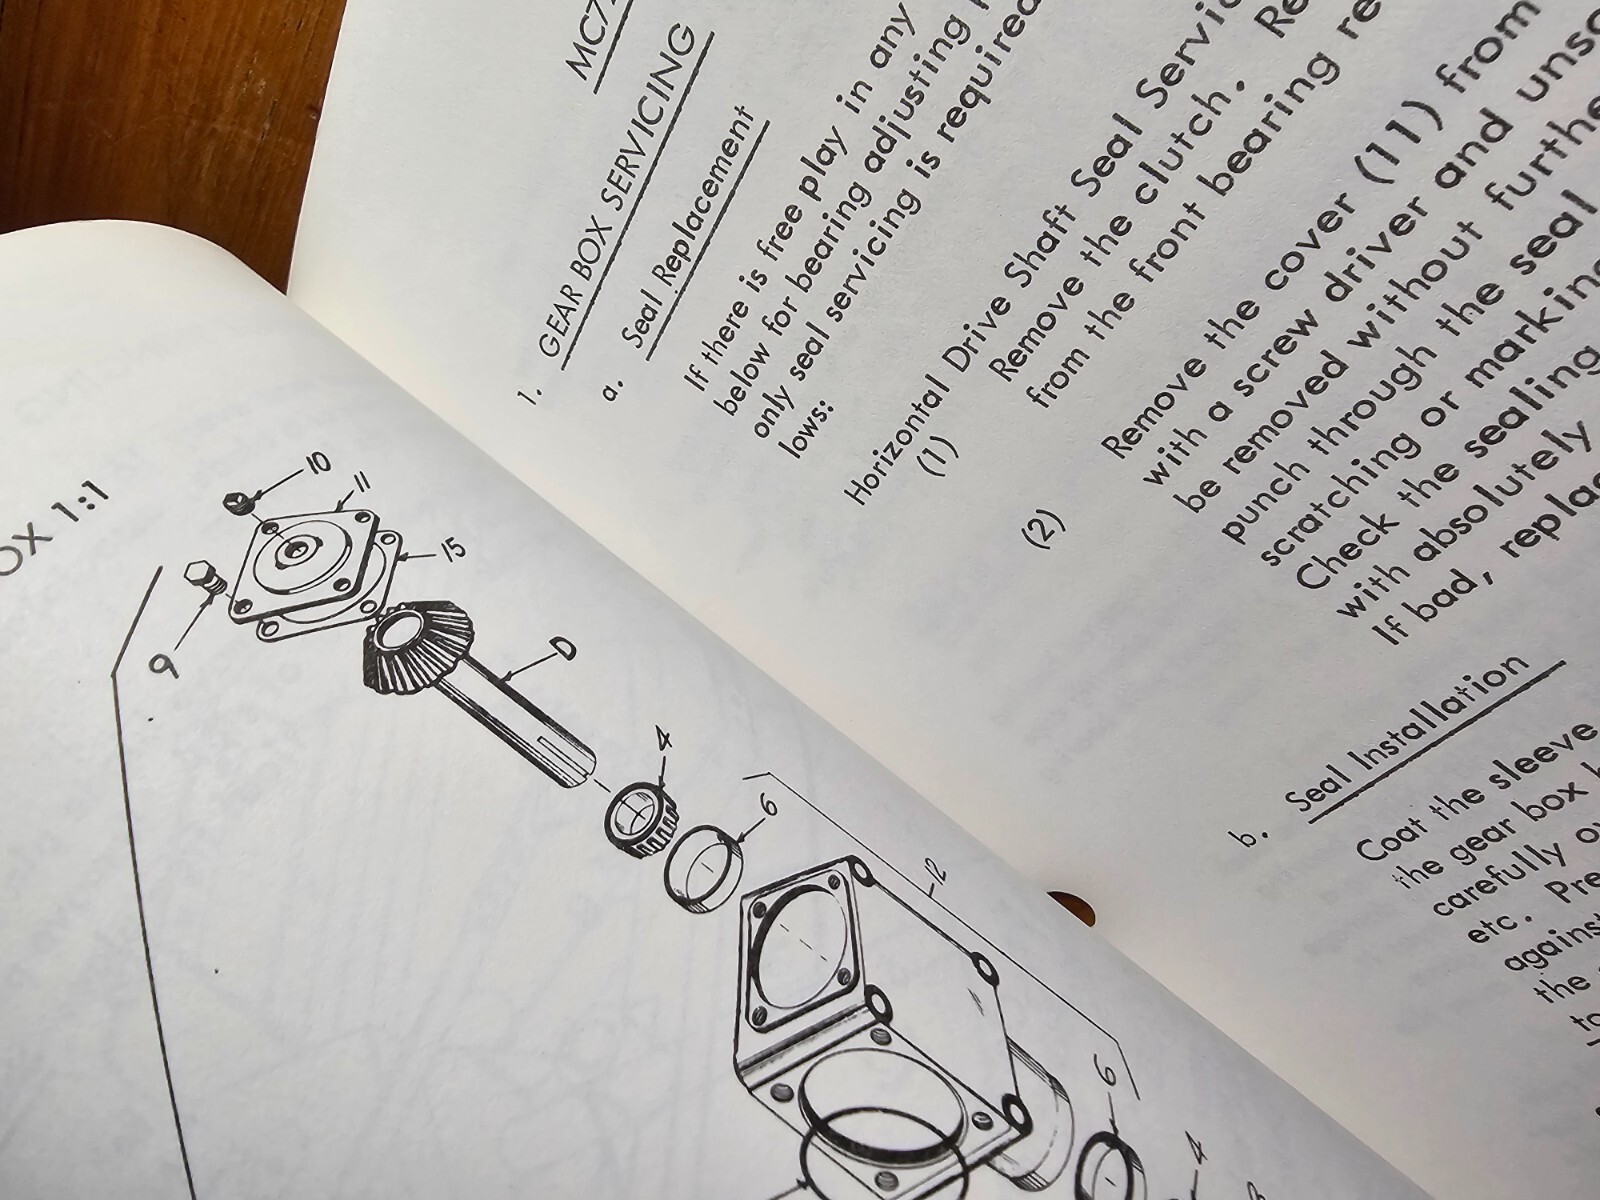 OX 1:1
10
11
15
9
D
4
6
12
6
4
MC7
GEAR BOX SERVICING
1.
a. Seal Replacement
If there is free play in any
below for bearing adjusting
only seal servicing is required
lows:
Horizontal Drive Shaft Seal Servic
(1) Remove the clutch. Re
from the front bearing re
(2) Remove the cover (11) from
with a screw driver and unsc
be removed without furthe
punch through the seal
scratching or marking
Check the sealing
with absolutely
If bad, replac
b. Seal Installation
Coat the sleeve
the gear box
carefully o
etc. Pre
against
the
to